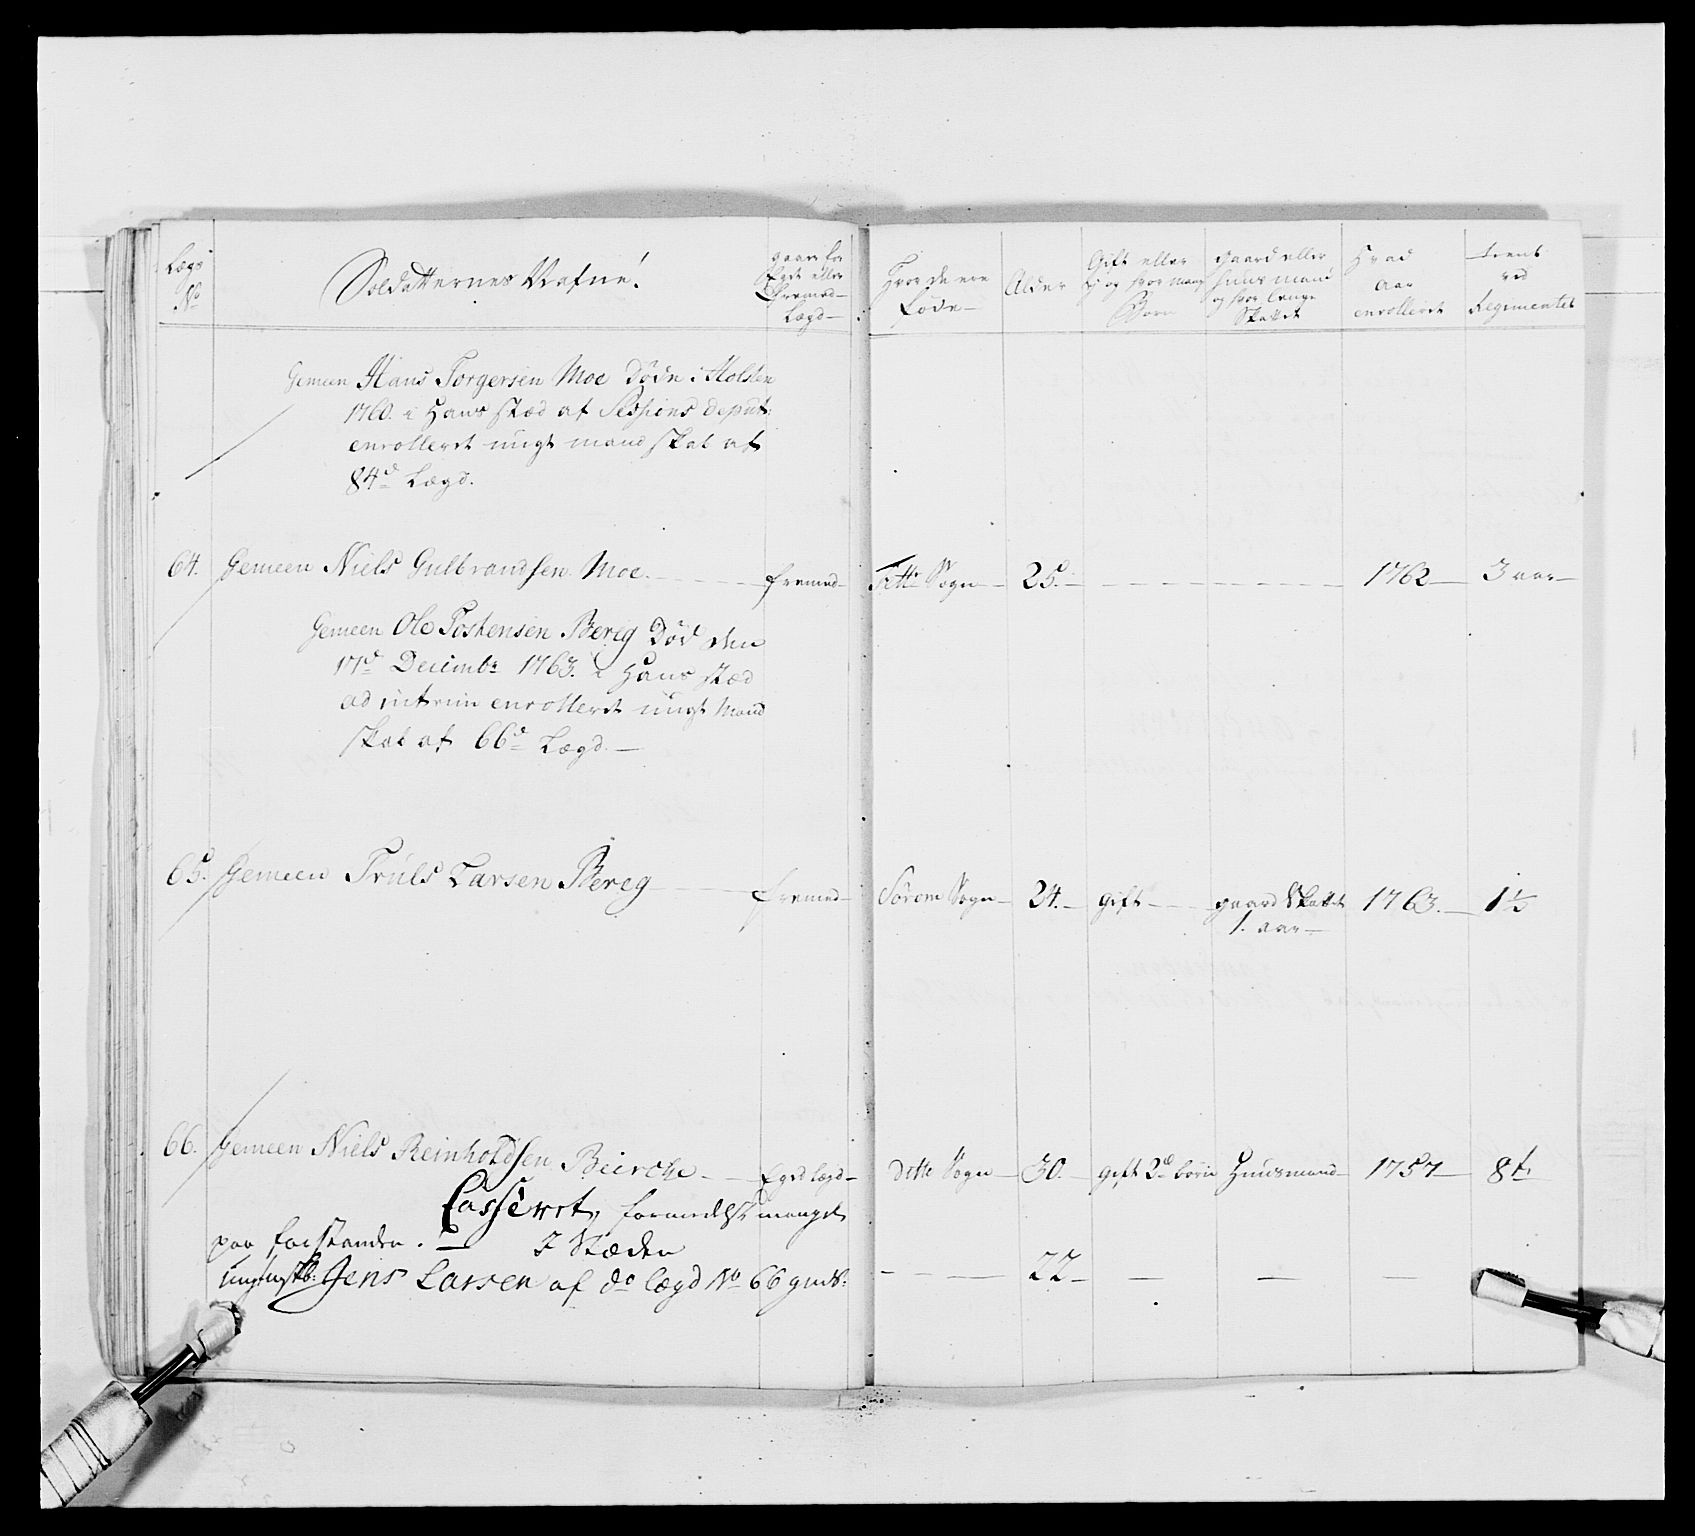 Lægs
No
Soldatternes Nafne!
gaaer for
Eget eller
fremed
Lægd
Hvor de ere
føde
Alder
Gift eller
ej og hvor mang
Børn
gaard eller
huusmand
og hvor længe
Skattet
Hvad
Aar
enrolleret
tient
ved
Regimentet
Gemeen Hans Torgersen Moe døde i Holsten
1760. i Hans stæd af Sessions deput:
enrolleret ungt mandskab af
84d Lægd.
64. Gemeen Niels Gulbrandsen Moe. fremed Ditto Sogn 25. 1762 3 aar
Gemeen Ole Tostensen Bereg Død den
17d Decembr 1763. i Hans stæd
ad interim enrolleret ungt Mand
skab af 66d Lægd.
65. Gemeen Truls Larsen Bereg fremed Sørem Sogn 24. gift gaard Skattet 1763. 1½
1. aar
66. Gemeen Niels Reinholdsen Bierche Eged lægd Ditto Sogn 30. gift 2d børn Huusmand 1757 8t.
Casseret, formedelst mangel
paa forstanden. I Stæden
ungmskb: Jens Larsen af do lægd No 66 22